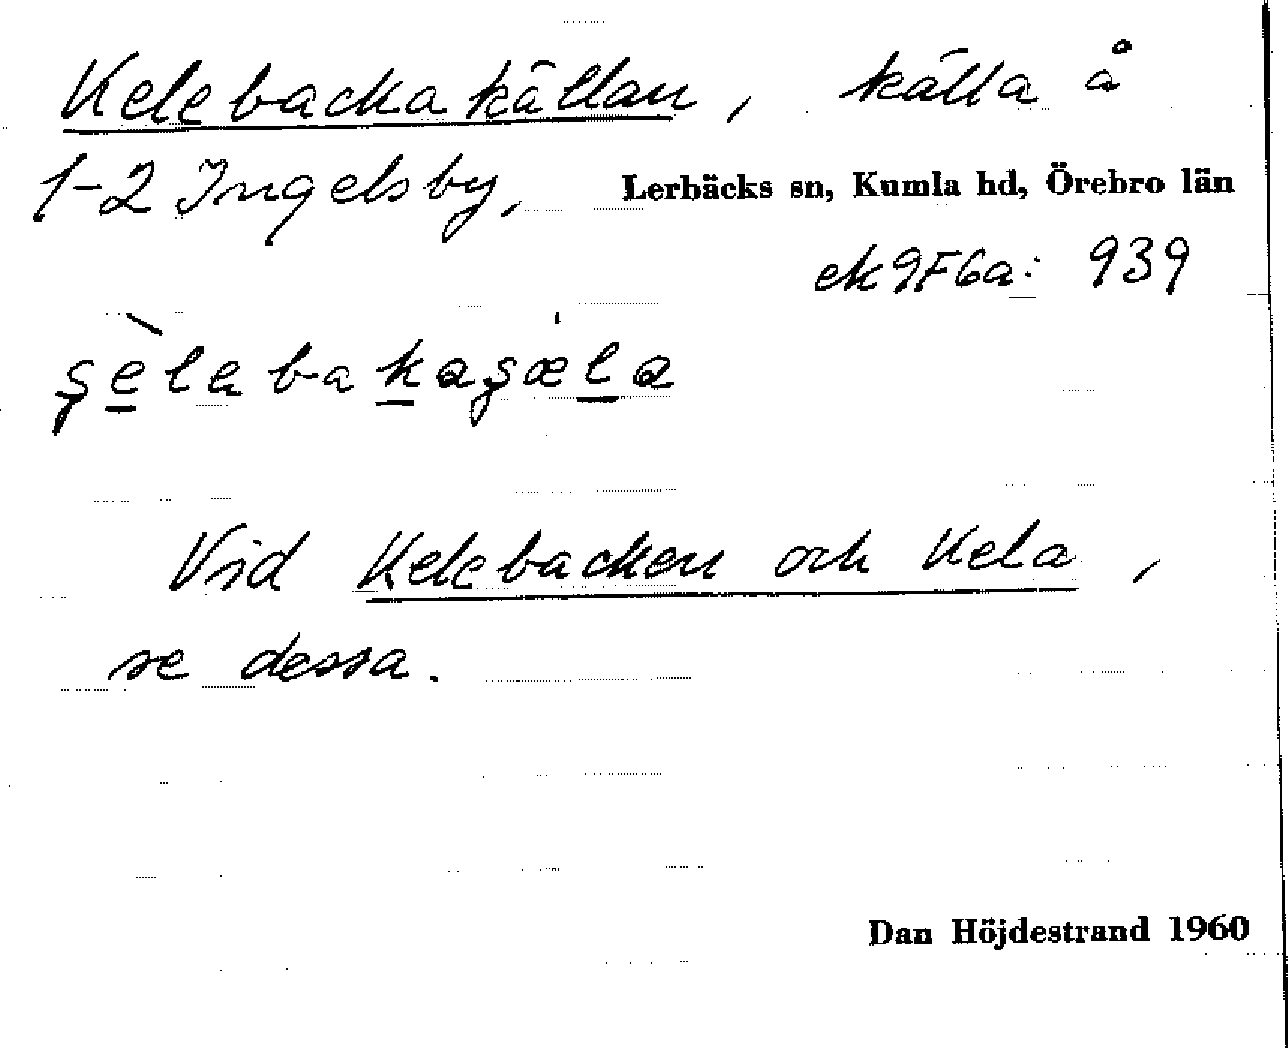 Kelebackakällan, källa å
1-2 Ingelsby, Lerbäcks sn, Kumla hd, Örebro län
ek 9F6a: 939
şèlebakaşæ̍la
Vid Kelebacken och Kela,
se dessa.
Dan Höjdestrand 1960